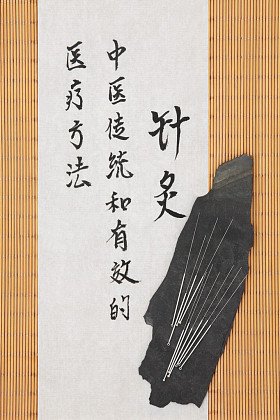 针灸
中医传统和有效的
医疗方法